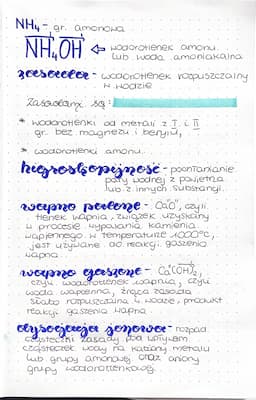 NH₄ - gr. amonowa
NH₄OH ← wodorotlenek amonu
lub woda amoniakalna
zasada - wodorotlenek rozpuszczalny
w wodzie
Zasadami są:
* wodorotlenki od metali z I i II
gr. bez magnezu i berylu,
* wodorotlenki amonu.
higroskopijność - pochłanianie
pary wodnej z powietrza
lub z innych substancji.
wapno palone - CaO, czyli
tlenek wapnia, związek uzyskany
w procesie wyprażania kamienia
wapiennego w temperaturze 1000°C,
jest używane do reakcji gaszenia
wapna.
wapno gaszone - Ca(OH)₂,
czyli wodorotlenek wapnia, czyli
woda wapienna, żrąca zasada
słabo rozpuszczalna w wodzie, produkt
reakcji gaszenia wapna.
dysocjacja jonowa - rozpad
cząsteczki zasady pod wpływem
cząsteczek wody na kationy metalu
lub grupy amonowej oraz aniony
grupy wodorotlenkowej.